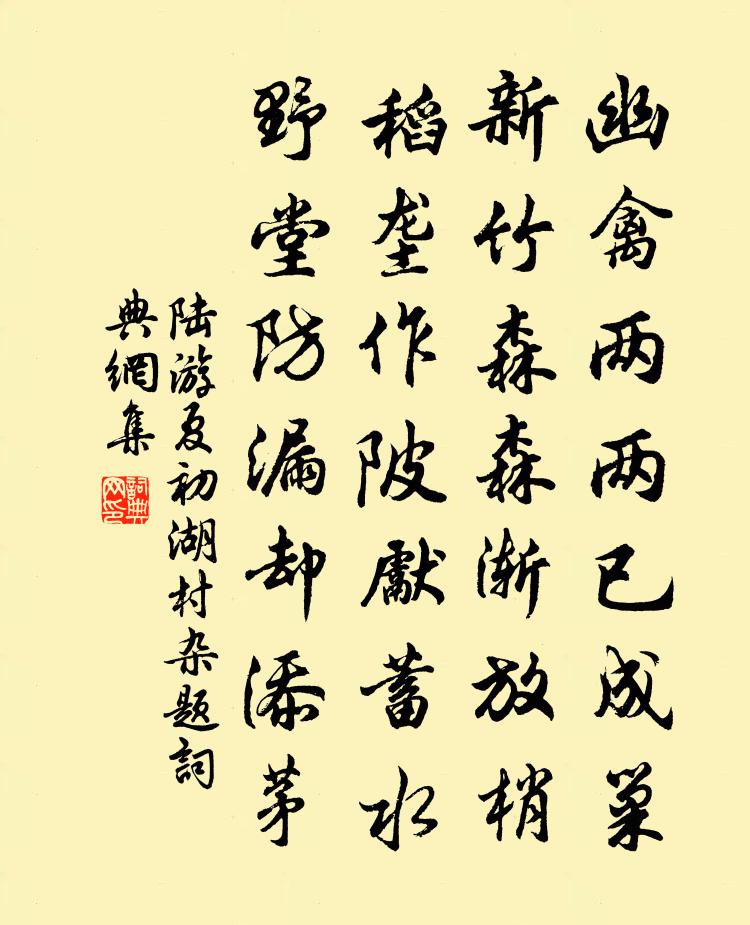 幽禽两两已成巢
新竹森森渐放梢
稻垄作陂献蓄水
野堂防漏却添茅
陆游夏初湖村杂题詞
典網集
詞典网印